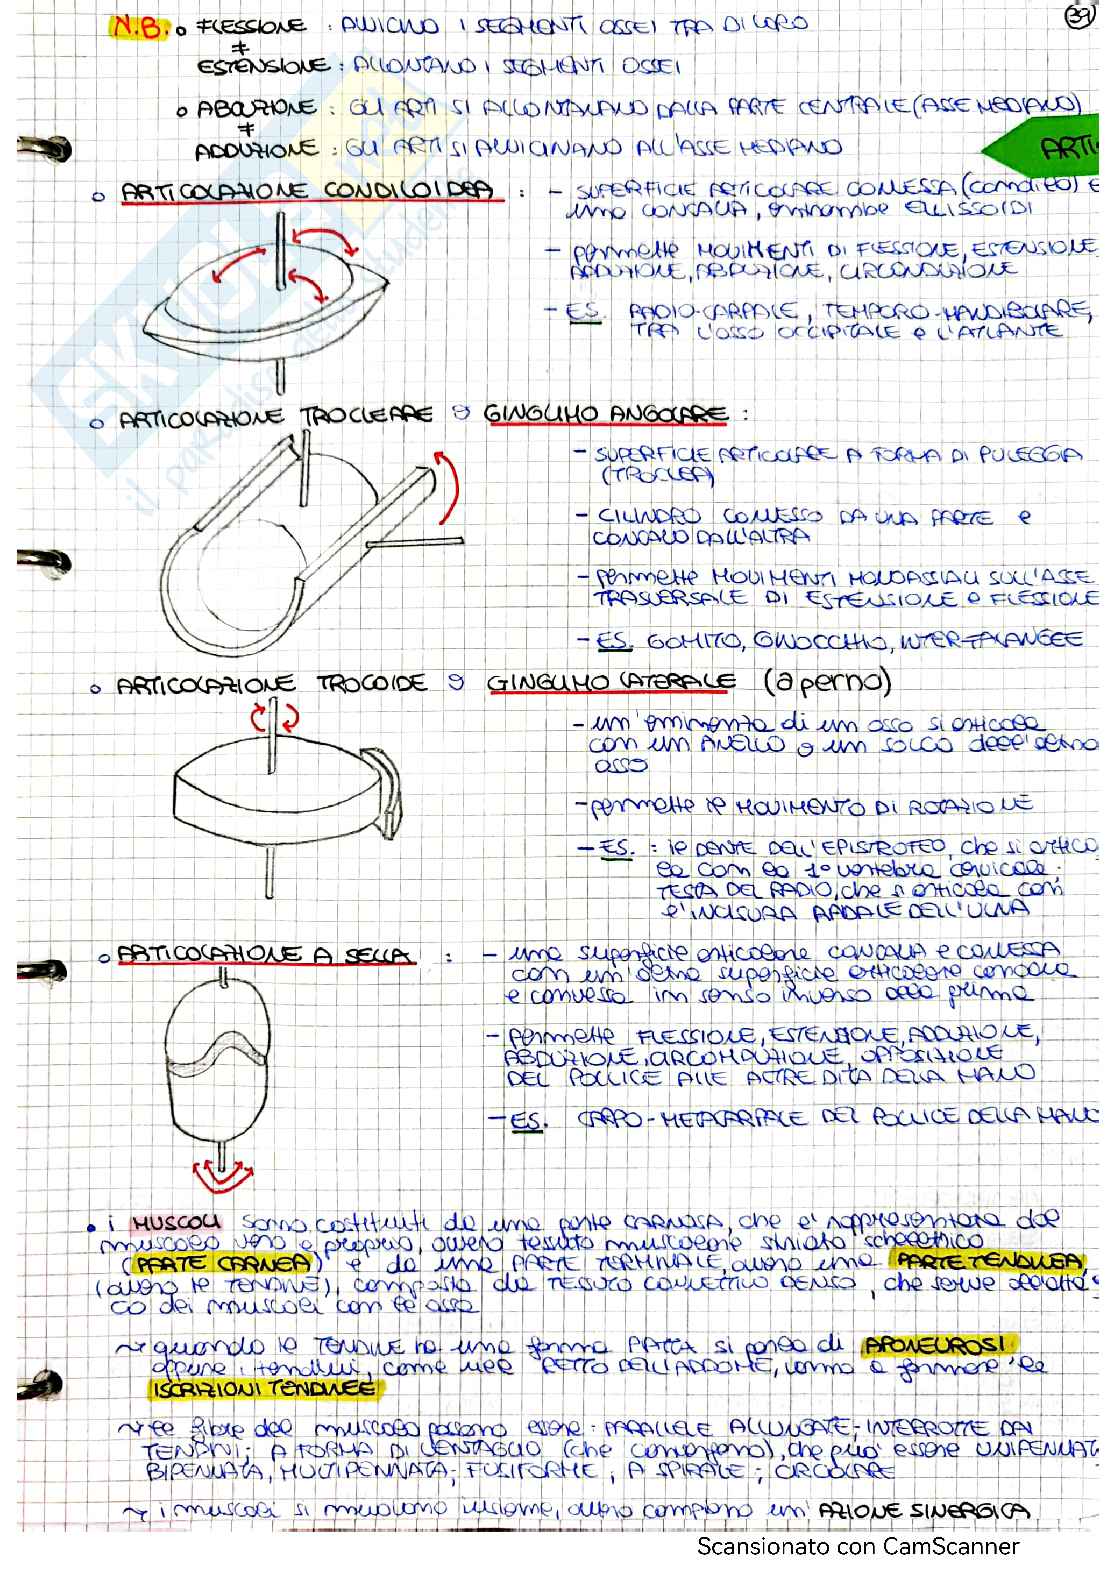 39
N.B. o FLESSIONE : AVVICINO I SEGMENTI OSSEI TRA DI LORO
≠
ESTENSIONE : ALLONTANO I SEGMENTI OSSEI
o ABDUZIONE : GLI ARTI SI ALLONTANANO DALLA PARTE CENTRALE (ASSE MEDIANO)
≠
ADDUZIONE : GLI ARTI SI AVVICINANO ALL'ASSE MEDIANO
ARTI
o ARTICOLAZIONE CONDILOIDEA : - SUPERFICIE ARTICOLARE CONVESSA (condilo) e
una CONCAVA, entrambe ELLISSOIDI
- permette MOVIMENTI DI FLESSIONE, ESTENSIONE
ADDUZIONE, ABDUZIONE, CIRCONDUZIONE
- ES. RADIO-CARPALE, TEMPORO-MANDIBOLARE,
TRA L'OSSO OCCIPITALE e L'ATLANTE
o ARTICOLAZIONE TROCLEARE o GINGLIMO ANGOLARE :
- SUPERFICIE ARTICOLARE A FORMA DI PULEGGIA
(TROCLEA)
- CILINDRO CONVESSO DA UNA PARTE e
CONCAVO DALL'ALTRA
- permette MOVIMENTI MONOASSIALI SULL'ASSE
TRASVERSALE DI ESTENSIONE e FLESSIONE
- ES. GOMITO, GINOCCHIO, INTER-FALANGEE
o ARTICOLAZIONE TROCOIDE o GINGLIMO LATERALE (a perno)
- un'eminenza di un osso si articola
con un ANELLO o un SOLCO dell'altro
osso
- permette il MOVIMENTO DI ROTAZIONE
- ES. : il DENTE DELL'EPISTROFEO, che si artico
la con la 1ª vertebra cervicale;
TESTA DEL RADIO, che si articola con
l'INCISURA RADIALE DELL'ULNA
o ARTICOLAZIONE A SELLA : - una superficie articolare CONCAVA e CONVESSA
con un'altra superficie articolare concava
e convessa in senso inverso alla prima
- permette FLESSIONE, ESTENSIONE, ADDUZIONE,
ABDUZIONE, CIRCONDUZIONE, OPPOSIZIONE
DEL POLLICE ALLE ALTRE DITA DELLA MANO
- ES. CARPO-METACARPALE DEL POLLICE DELLA MANO
• i MUSCOLI sono costituiti da una parte CARNOSA, che è rappresentata dal
muscolo vero e proprio, ovvero tessuto muscolare striato scheletrico
(PARTE CARNEA) e da una PARTE TERMINALE, ovvero una PARTE TENDINEA,
(ovvero il TENDINE), composta da TESSUTO CONNETTIVO DENSO, che serve all'attac
co dei muscoli con le ossa
~ quando il TENDINE ha una forma PIATTA si parla di APONEUROSI
oppure i tendini, come nel RETTO DELL'ADDOME, vanno a formare le
ISCRIZIONI TENDINEE
~ le fibre del muscolo possono essere: PARALLELE ALLUNGATE; INTERROTTE DAI
TENDINI; A FORMA DI VENTAGLIO (che convergono), che può essere UNIPENNATA
BIPENNATA, MULTIPENNATA; FUSIFORME; A SPIRALE; CIRCOLARE
~ i muscoli si muovono insieme, ovvero compiono un'AZIONE SINERGICA
Scansionato con CamScanner